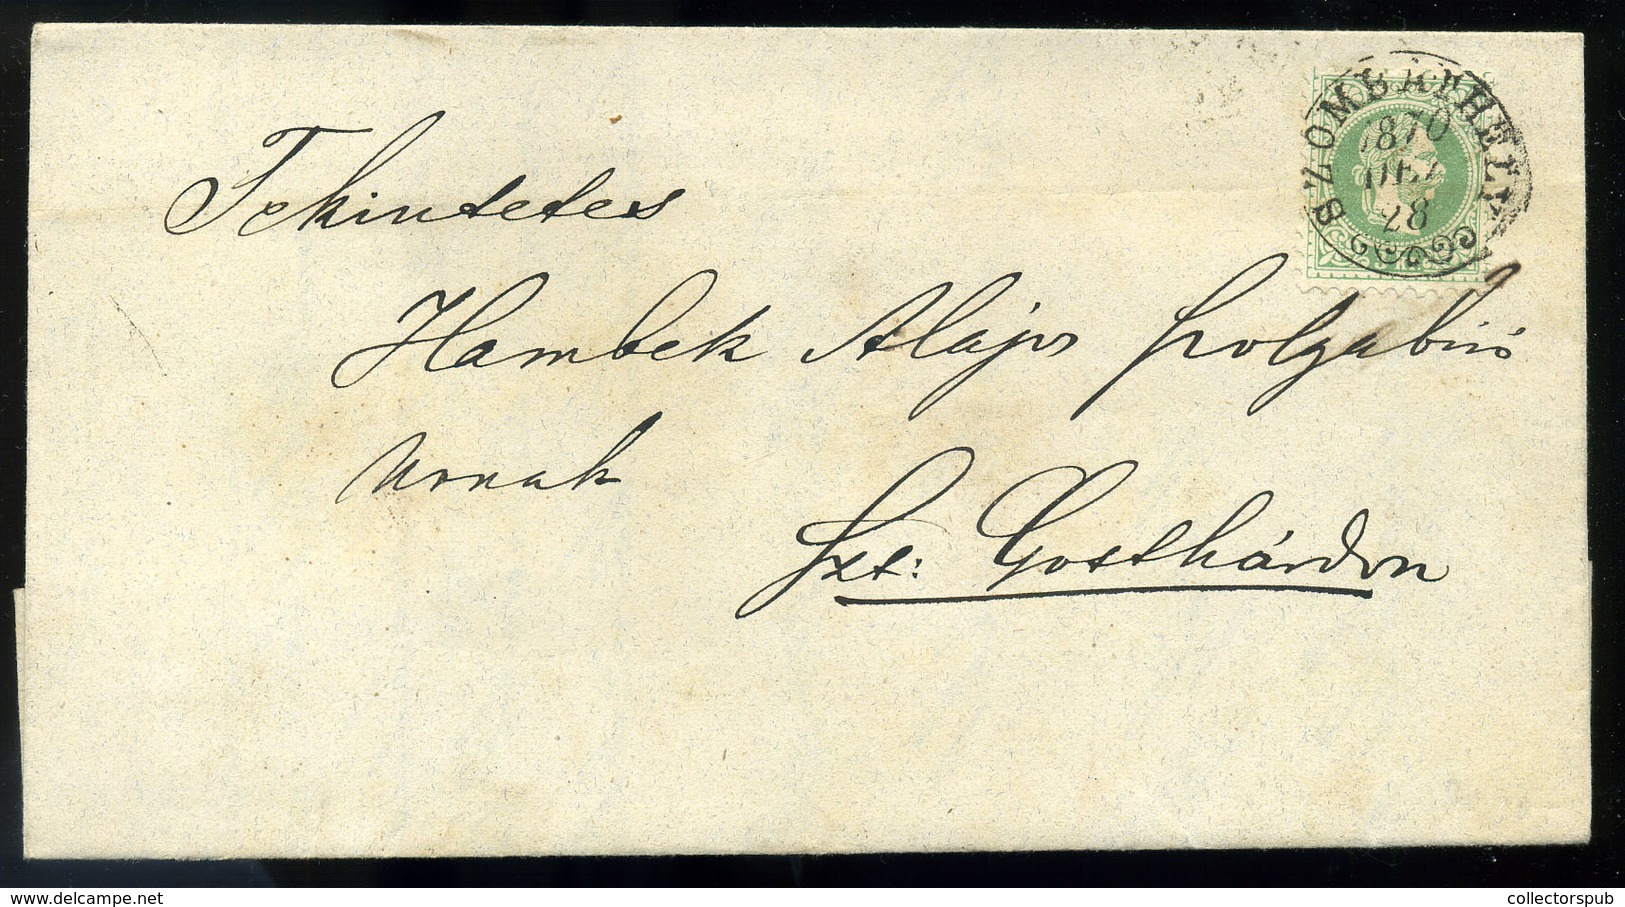 SZOMBATHELY
1870
DEC
28
Tekintetes
Hambek Alajos szolgabiró
Urnak
Szt: Gotthárdon
collectorspub